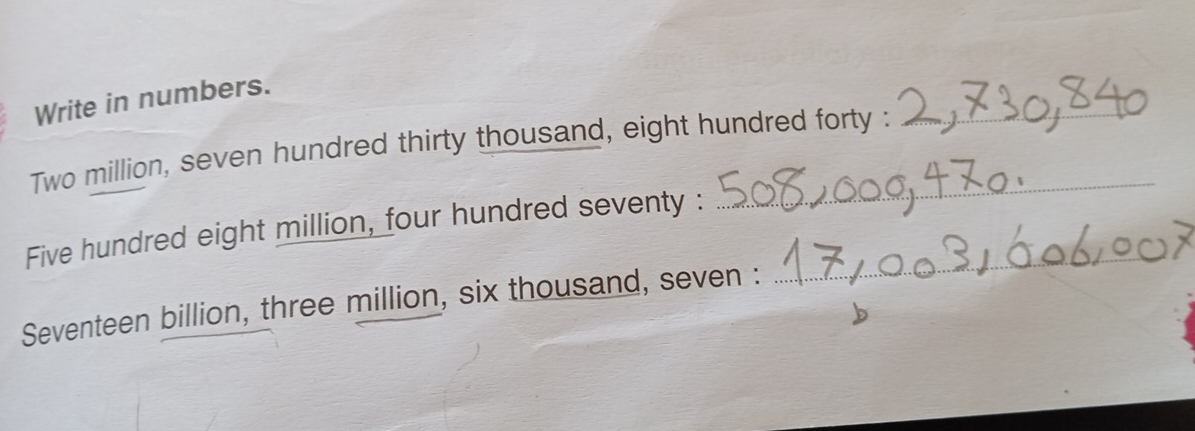 Write in numbers.
Two million, seven hundred thirty thousand, eight hundred forty : 2,730,840
Five hundred eight million, four hundred seventy : 508,000,470.
Seventeen billion, three million, six thousand, seven : 17,003,006,007
b